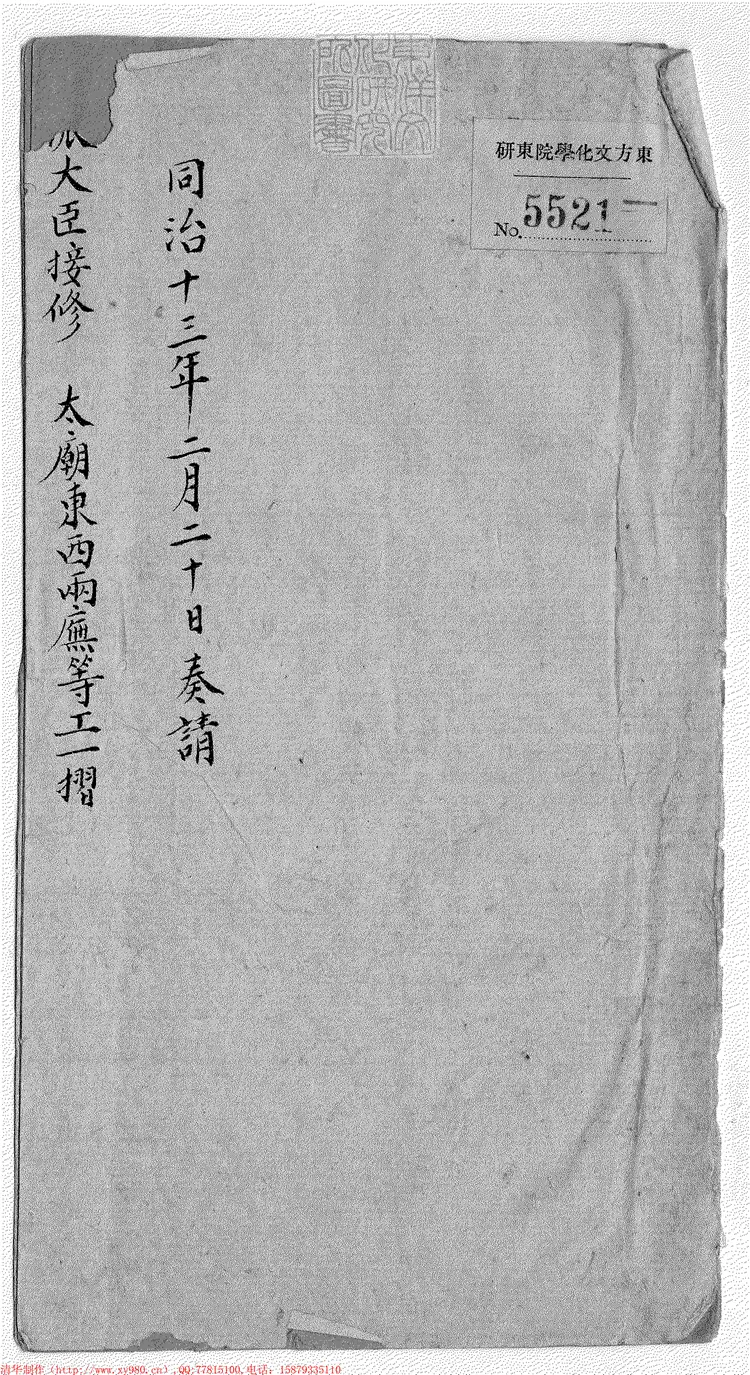 東洋文
化研究
所圖書
東方文化學院東研
No. 5521 一
同治十三年二月二十日奏請
派大臣接修 太廟東西兩廡等工一摺
清华制作(http://www.xy980.cn),QQ:77815100,电话:15879335110